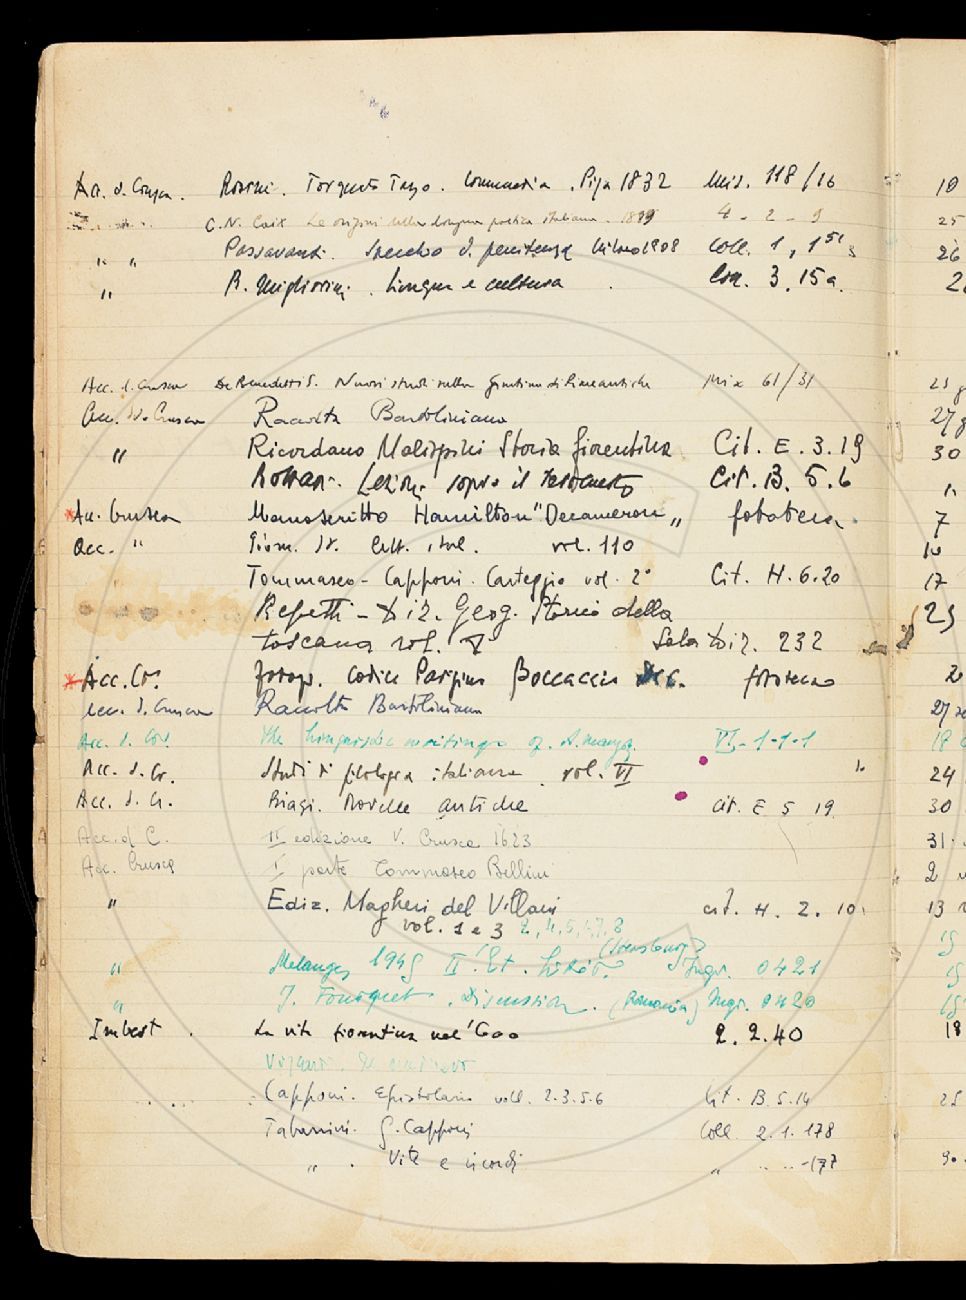 Acc. d. Crusca. Rosini. Torquato Tasso. Commedia. Pisa 1832 Mis. 118/16 10
C.N. Caix Le origini della lingua poetica italiana. 4-2-9 25
" " Passavanti. Specchio d. penitenza Milano 1808 Coll. 1, 1 26
" B. Migliorini. Lingua e cultura. 3.15a. 2
Acc. d. Crusca De Benedetti S. Nuovi studi sulla Giuntina di Rime antiche Mis 61/31 23 g
Acc. d. Crusca Raccolta Bartoliniana 27 g
" Ricordano Malispini Storia fiorentina Cit. E. 3. 19 30
Lezione sopra il Cit. B. 5. 6 "
Acc. Crusca Manoscritto Hamilton "Decameron" fototeca. 7
Acc. " Giorn. St. Lett. ital. vol. 110 10
Tommaseo - Capponi. Carteggio vol. 2° Cit. H. 6. 20 17
Repetti - Diz. Geog. Storico della 23
Toscana vol. Sala Diz. 232
Acc. Cr. fotogr. Codice Parigino Boccaccio Dec. fototeca 2
Acc. d. Crusca Raccolta Bartoliniana 27
Acc. d. Cr. The linguistic writings of A. VI-1-1-1 18
Acc. d. Cr. Studi di filologia italiana vol. VI " 24
Acc. d. Cr. Biagi. Novelle antiche cit. E 5 19. 30
Acc. d. C. II edizione V. Crusca 1623 31
Acc. Crusca I parte Tommaseo Bellini 2
" Ediz. Magheri del Villani cit. H. 2. 10. 13
vol. 1 e 3 2, 4, 5, 6, 7, 8
(Strasbourg) 15
" Melanges 1945 II. Et. Littér. Ingr. 0421 15
" J. Fourquet. Discussion. (Romania) Ingr. 0420 15
Imbert. La vita fiorentina nel '600 2. 2. 40 18
Capponi. Epistolario voll. 2.3.5.6 Cit. B. 5. 14 25
Tabarrini. G. Capponi Coll. 2. 1. 178
" . Vita e ricordi " -177 30